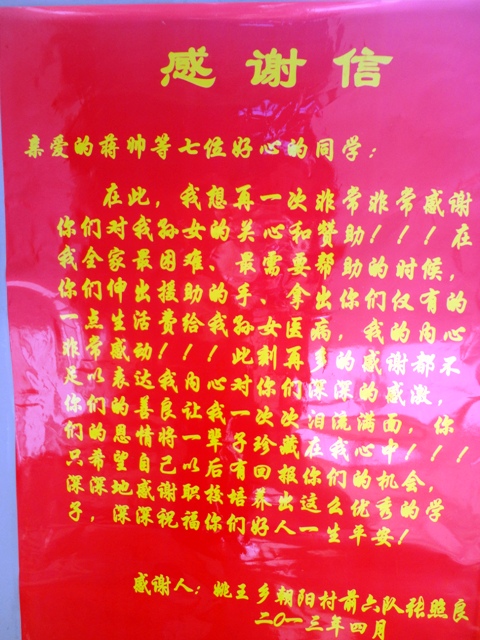 感谢信
亲爱的蒋帅等七位好心的同学：
在此，我想再一次非常非常感谢
你们对我孙女的关心和赞助！！！在
我全家最困难、最需要帮助的时候，
你们伸出援助的手、拿出你们仅有的
一点生活费给我孙女医病，我的内心
非常感动！！！此刻再多的感谢都不
足以表达我内心对你们深深的感激，
你们的善良让我一次次泪流满面，你
们的恩情将一辈子珍藏在我心中！！！
只希望自己以后有回报你们的机会，
深深地感谢职校培养出这么优秀的学
子，深深祝福你们好人一生平安！
感谢人：姚王乡朝阳村前六队张照良
二○一三年四月